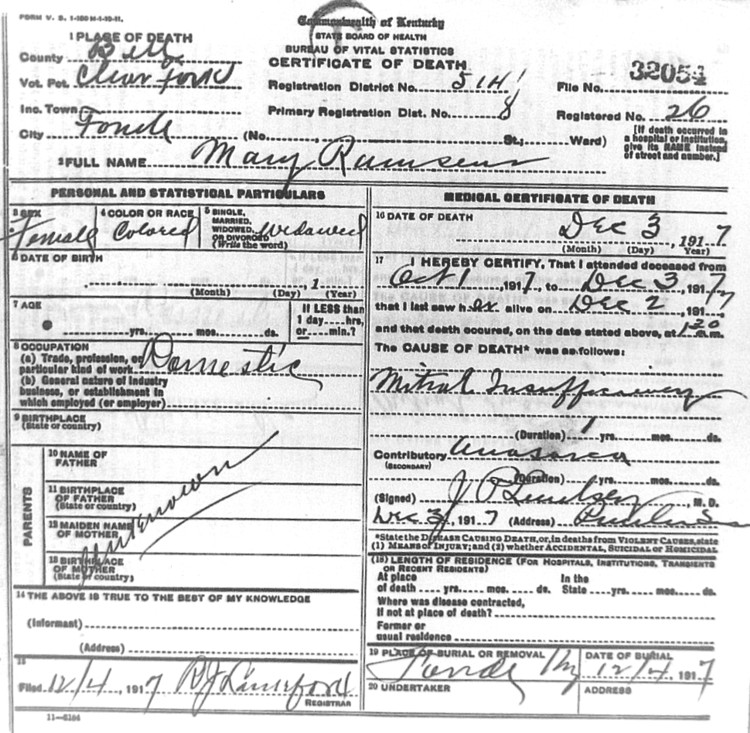 FORM V. S. 1-100 M-1-10-11.
Commonwealth of Kentucky
STATE BOARD OF HEALTH
BUREAU OF VITAL STATISTICS
CERTIFICATE OF DEATH
1 PLACE OF DEATH
County Bell
Vot. Pct. Clear Fork
Inc. Town
City Fonde
Registration District No. 514
File No. 32054
Primary Registration Dist. No. 8
Registered No. 26
(No. St.; Ward)
[If death occurred in a hospital or institution, give its NAME instead of street and number.]
2 FULL NAME Mary
PERSONAL AND STATISTICAL PARTICULARS
3 SEX Female
4 COLOR OR RACE Colored
5 SINGLE, MARRIED, WIDOWED, OR DIVORCED (Write the word) Widowed
6 DATE OF BIRTH
, 1
(Month) (Day) (Year)
7 AGE
yrs. mos. ds.
If LESS than 1 day, hrs. or min.?
8 OCCUPATION
(a) Trade, profession, or particular kind of work Domestic
(b) General nature of industry business, or establishment in which employed (or employer)
9 BIRTHPLACE
(State or country)
PARENTS
10 NAME OF FATHER
11 BIRTHPLACE OF FATHER
(State or country)
12 MAIDEN NAME OF MOTHER
13 BIRTHPLACE OF MOTHER
(State or country)
Unknown
14 THE ABOVE IS TRUE TO THE BEST OF MY KNOWLEDGE
(Informant)
(Address)
15
Filed 12/4, 1917
REGISTRAR
11-8184
MEDICAL CERTIFICATE OF DEATH
16 DATE OF DEATH
Dec 3, 1917
(Month) (Day) (Year)
17 I HEREBY CERTIFY, That I attended deceased from
Oct 1, 1917, to Dec 3, 1917
that I last saw her alive on Dec 2, 191
and that death occured, on the date stated above, at 1 20 a.m.
The CAUSE OF DEATH* was as follows:
Mitral Insufficiency
(Duration) 1 yrs. mos. ds.
Contributory Anasarca
(SECONDARY)
(Duration) yrs. mos. ds.
(Signed) M. D.
Dec 3, 1917 (Address)
*State the DISEASE CAUSING DEATH, or, in deaths from VIOLENT CAUSES, state
(1) MEANS OF INJURY; and (2) whether ACCIDENTAL, SUICIDAL OR HOMICIDAL
(18) LENGTH OF RESIDENCE (FOR HOSPITALS, INSTITUTIONS, TRANSIENTS OR RECENT RESIDENTS)
At place of death yrs. mos. ds.
In the State yrs. mos. ds.
Where was disease contracted,
If not at place of death?
Former or
usual residence
19 PLACE OF BURIAL OR REMOVAL Fonde Ky
DATE OF BURIAL 12/4, 1917
20 UNDERTAKER
ADDRESS